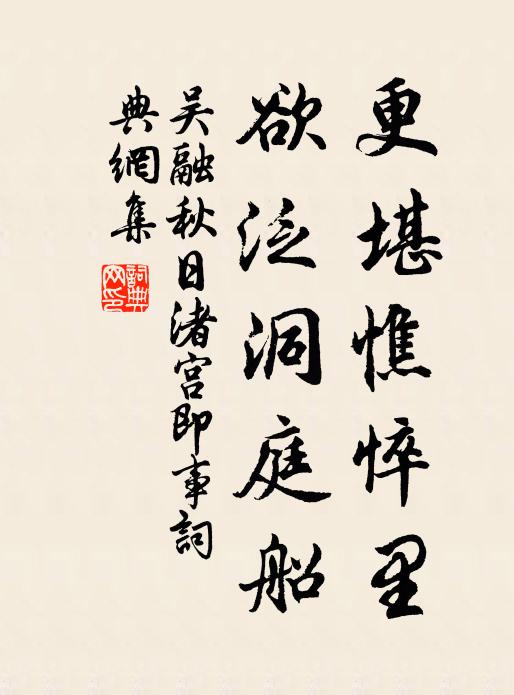 更堪憔悴里
欲泛洞庭船
吴融秋日渚宫即事詞
典網集
詞典网印